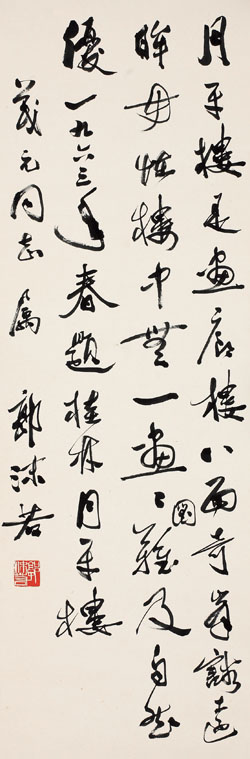 月牙樓是畫廊樓八面奇峯豁遠
眸毋怪樓中無一畫〻圖難及自然
優一九六三年春題桂林月牙樓
義元同志屬 郭沫若